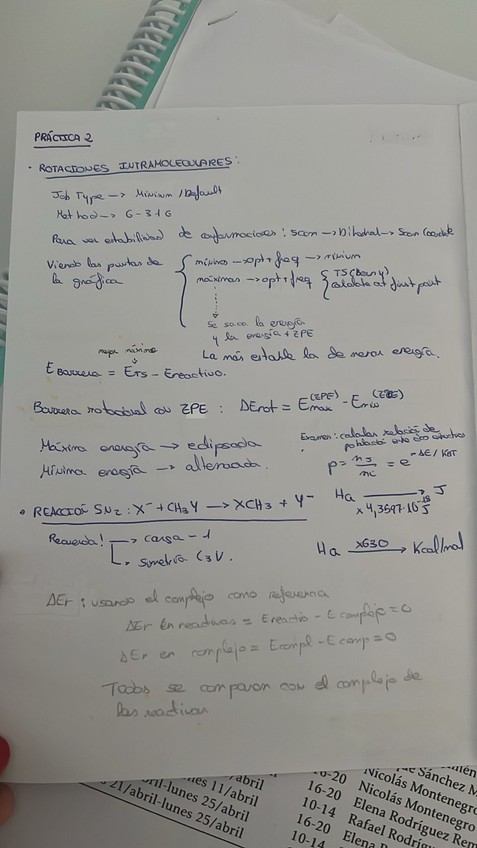 PRÁCTICA 2
· ROTACIONES INTRAMOLECULARES:
Job Type → Minium/Default
Method → 6-31G
Para ver estabilidad de conformaciones: scan → Dihedral → Scan Coordinate
Viendo los puntos de la gráfica
mínimo → opt+freq → minium
máximos → opt+freq
TS (Berny)
calculate at first point
Se saca la energía
y la energía + ZPE
La más estable la de menor energía.
mayor máximo
E Barrera = ETS - Ereactivo.
Barrera rotacional con ZPE: ΔErot = Emax (ZPE) - Emin (ZPE)
Máxima energía → eclipsada
Mínima energía → alternada.
Examen: calcular relación de
población entre dos
p = nj/ni = e^-ΔE/KBT
Ha → J
x 4,3597·10^-18 J
· REACCIÓN SN2: X⁻ + CH3Y → XCH3 + Y⁻
Recuerda! → carga -1
→ Simetría C3V.
Ha x630 → Kcal/mol
ΔEr: usando el complejo como referencia
ΔEr en reactivos = Ereactiv - E complejo = 0
ΔEr en complejo = Ecompl - Ecomp = 0
Todos se comparan con el complejo de
los reactivos
21/abril-lunes 25/abril
abril-lunes 25/abril
lunes 25/abril
lunes 11/abril
/abril
10-20
16-20
10-14
16-20
10-14
Sánchez M
Nicolás Montenegro
Nicolás Montenegro
Elena Rodríguez Rem
Rafael Rodríg
Elena R